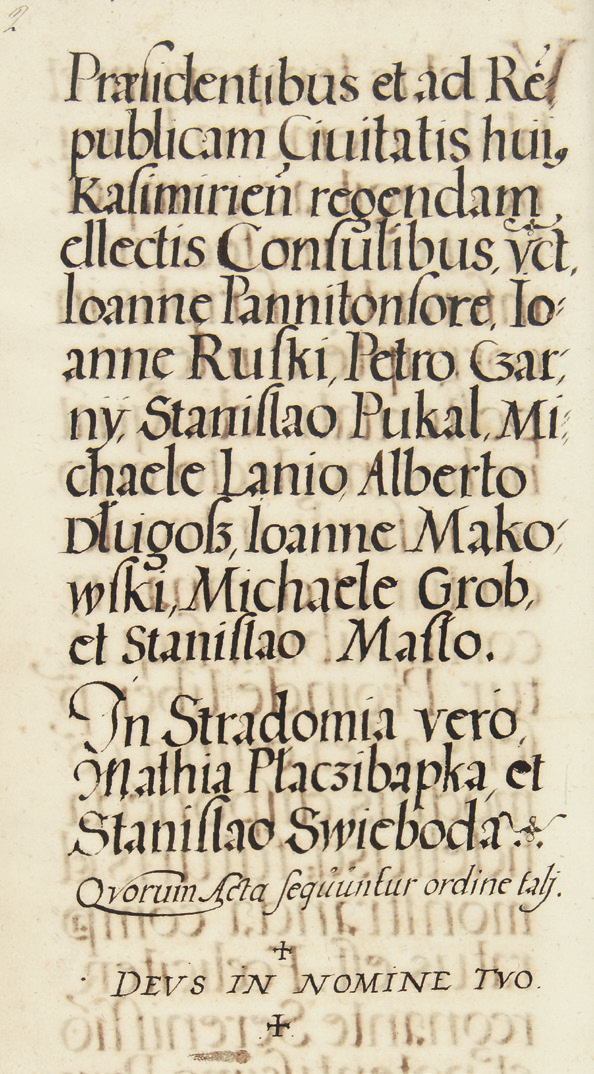 2
Præsidentibus et ad Ré
publicam Ciuitatis hui9
Kasimirień regendam
ellectis Consulibus, vct.
Ioanne Pannitonsore, Io-
anne Ruski, Petro Czar-
ny, Stanislao Pukal, Mi-
chaele Lanio, Alberto
Długosz, Ioanne Mako-
wski, Michaele Grob,
et Stanislao Masło.
In Stradomia vero,
Mathia Płaczibapka, et
Stanislao Swieboda.
Qvorum Acta sequuntur ordine talj.
DEVS IN NOMINE TVO.